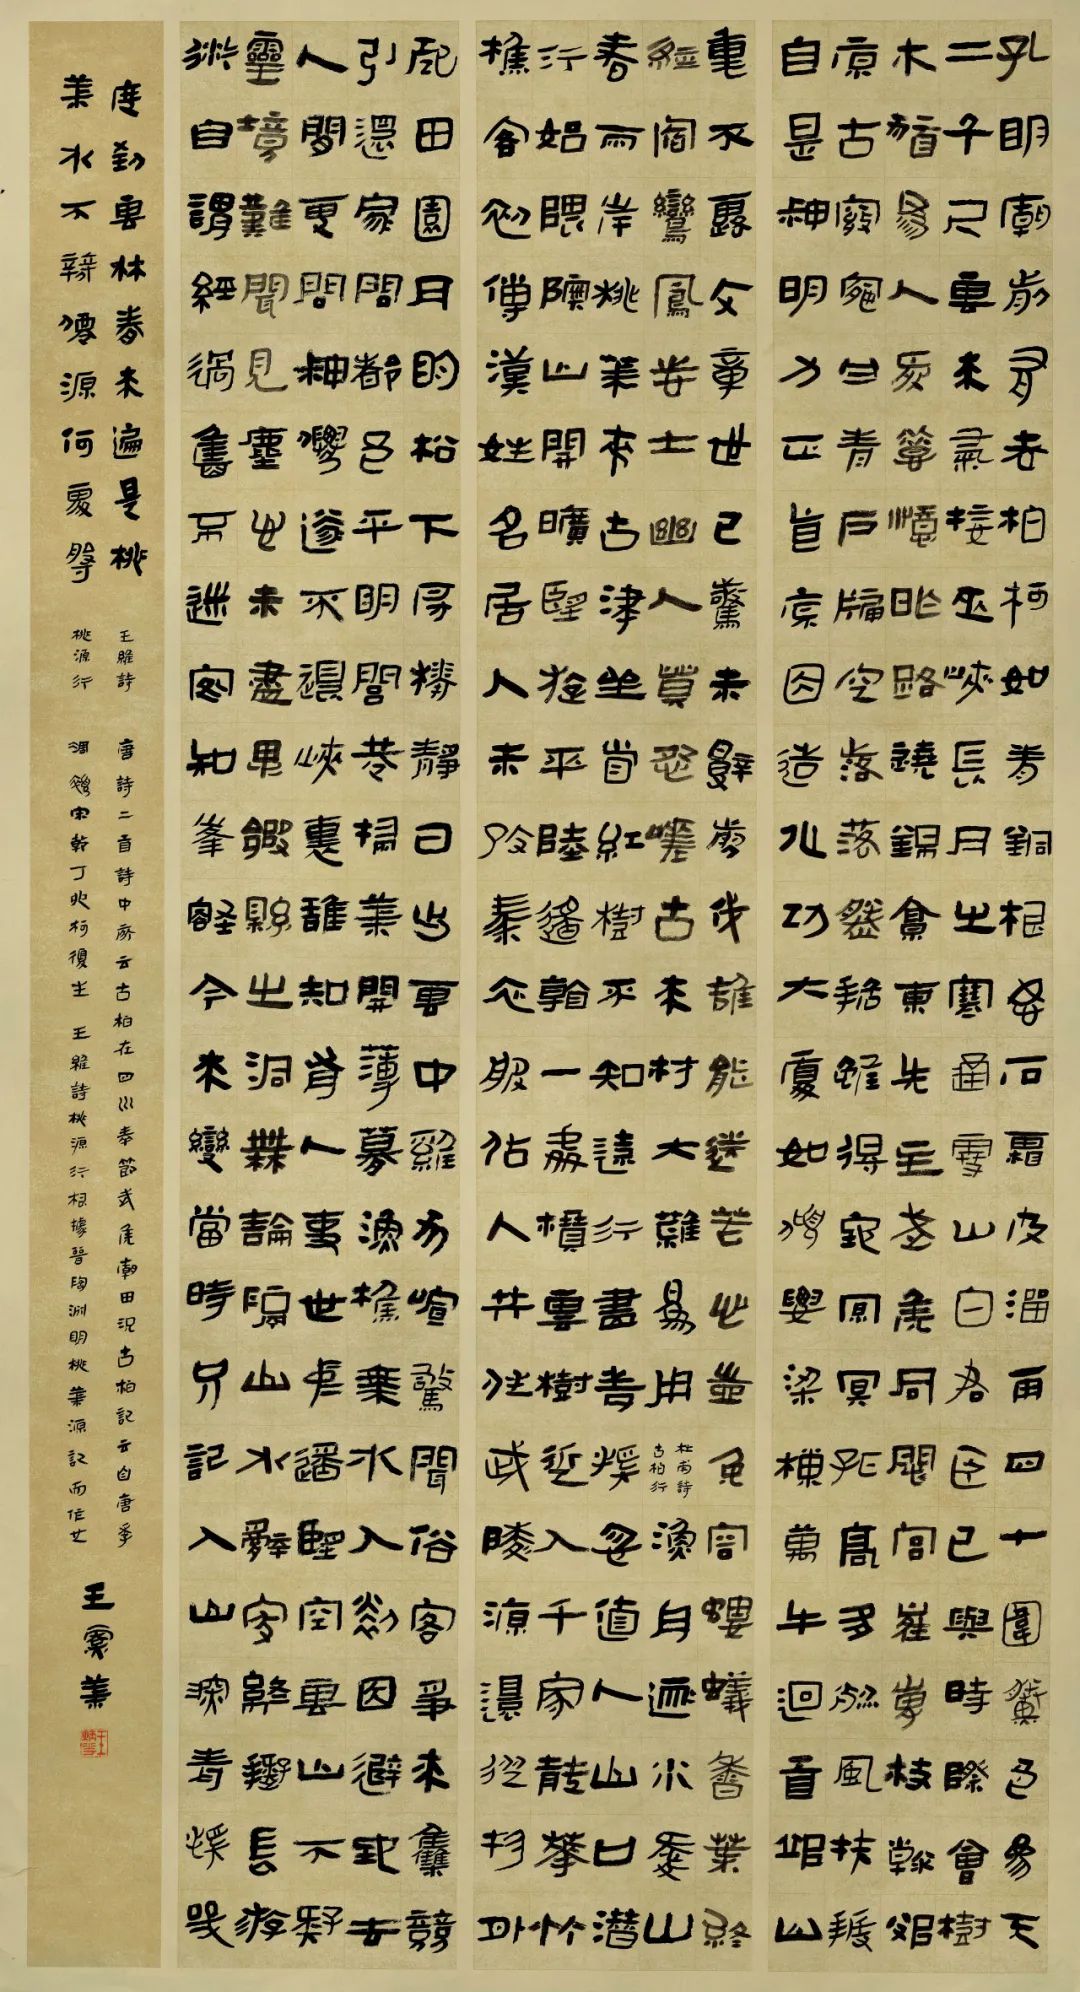 孔明廟前有老柏柯如青銅根如石霜皮溜雨四十圍黛色參天
二千尺雲來氣接巫峽長月出寒通雪山白君臣已與時際會樹
木猶為人愛惜憶昨路繞錦亭東先主武侯同閟宮崔嵬枝榦郊
原古窈窕丹青戶牖空落落盤踞雖得地冥冥孤高多烈風扶持
自是神明力正直原因造化功大廈如傾要梁棟萬牛迴首丘山
重不露文章世已驚未辭翦伐誰能送苦心豈免容螻蟻香葉終
經宿鸞鳳志士幽人莫怨嗟古來材大難為用
杜甫詩
古柏行
漁舟逐水愛山
春兩岸桃花夾古津坐看紅樹不知遠行盡青溪忽值人山口潛
行始隈隩山開曠望旋平陸遙看一處攢雲樹近入千家散花竹
樵客初傳漢姓名居人未改秦衣服居人共住武陵源還從物外
起田園月明松下房櫳靜日出雲中雞犬喧驚聞俗客爭來集競
引還家問都邑平明閭巷掃花開薄暮漁樵乘水入初因避地去
人間更問神仙遂不還峽裏誰知有人事世中遙望空雲山不疑
靈境難聞見塵心未盡思鄉縣出洞無論隔山水辭家終擬長游
衍自謂經過舊不迷安知峯壑今來變當時只記入山深青溪幾
度到雲林春來遍是桃
花水不辨仙源何處尋
王維詩
桃源行
唐詩二首詩中所云古柏在四川奉節武侯廟田況古柏記云自唐季
凋瘁宋乾丁卯柯復生 王維詩桃源行根據晉陶淵明桃花源記而作也
王